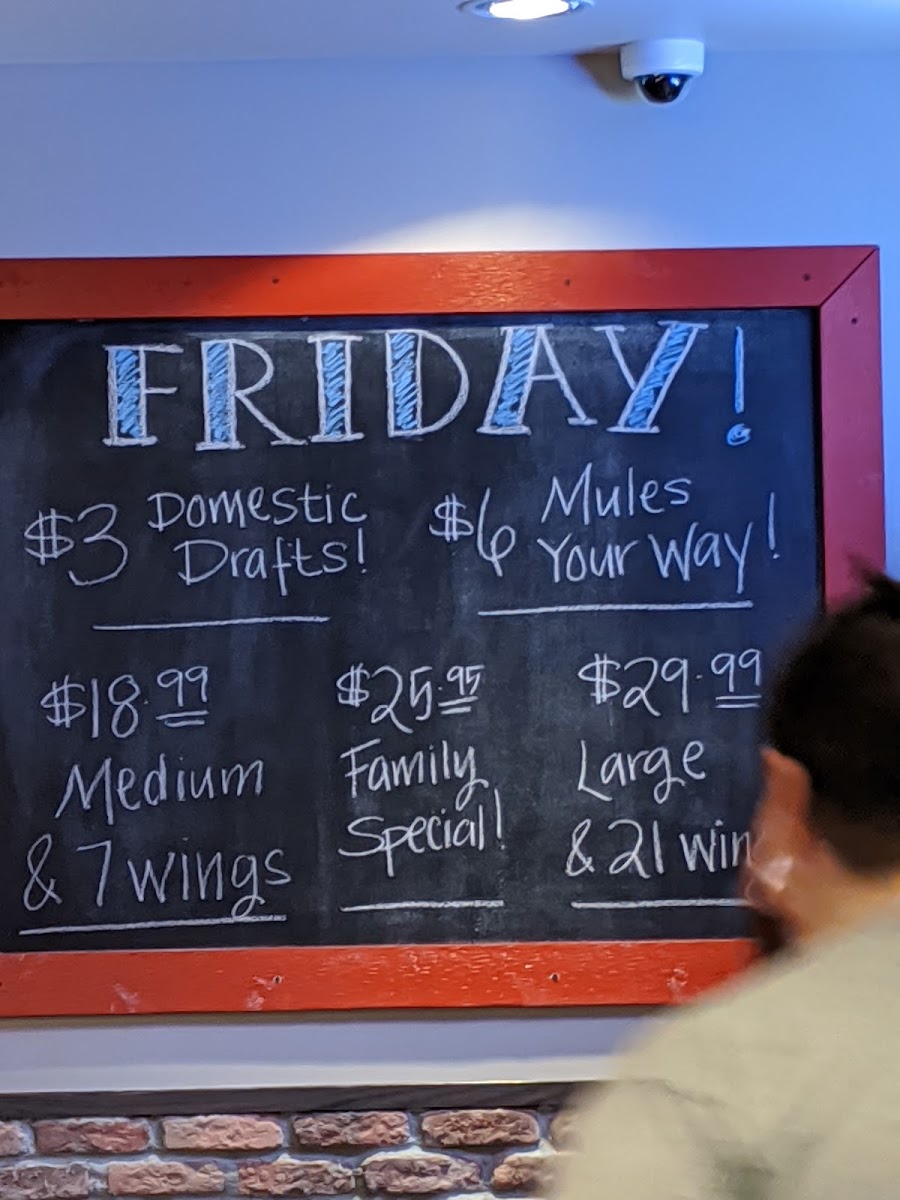 FRIDAY!
$3 Domestic
Drafts!
$6 Mules
Your Way!
$18.99
Medium
& 7 wings
$25.95
Family
Special!
$29.99
Large
& 21 win